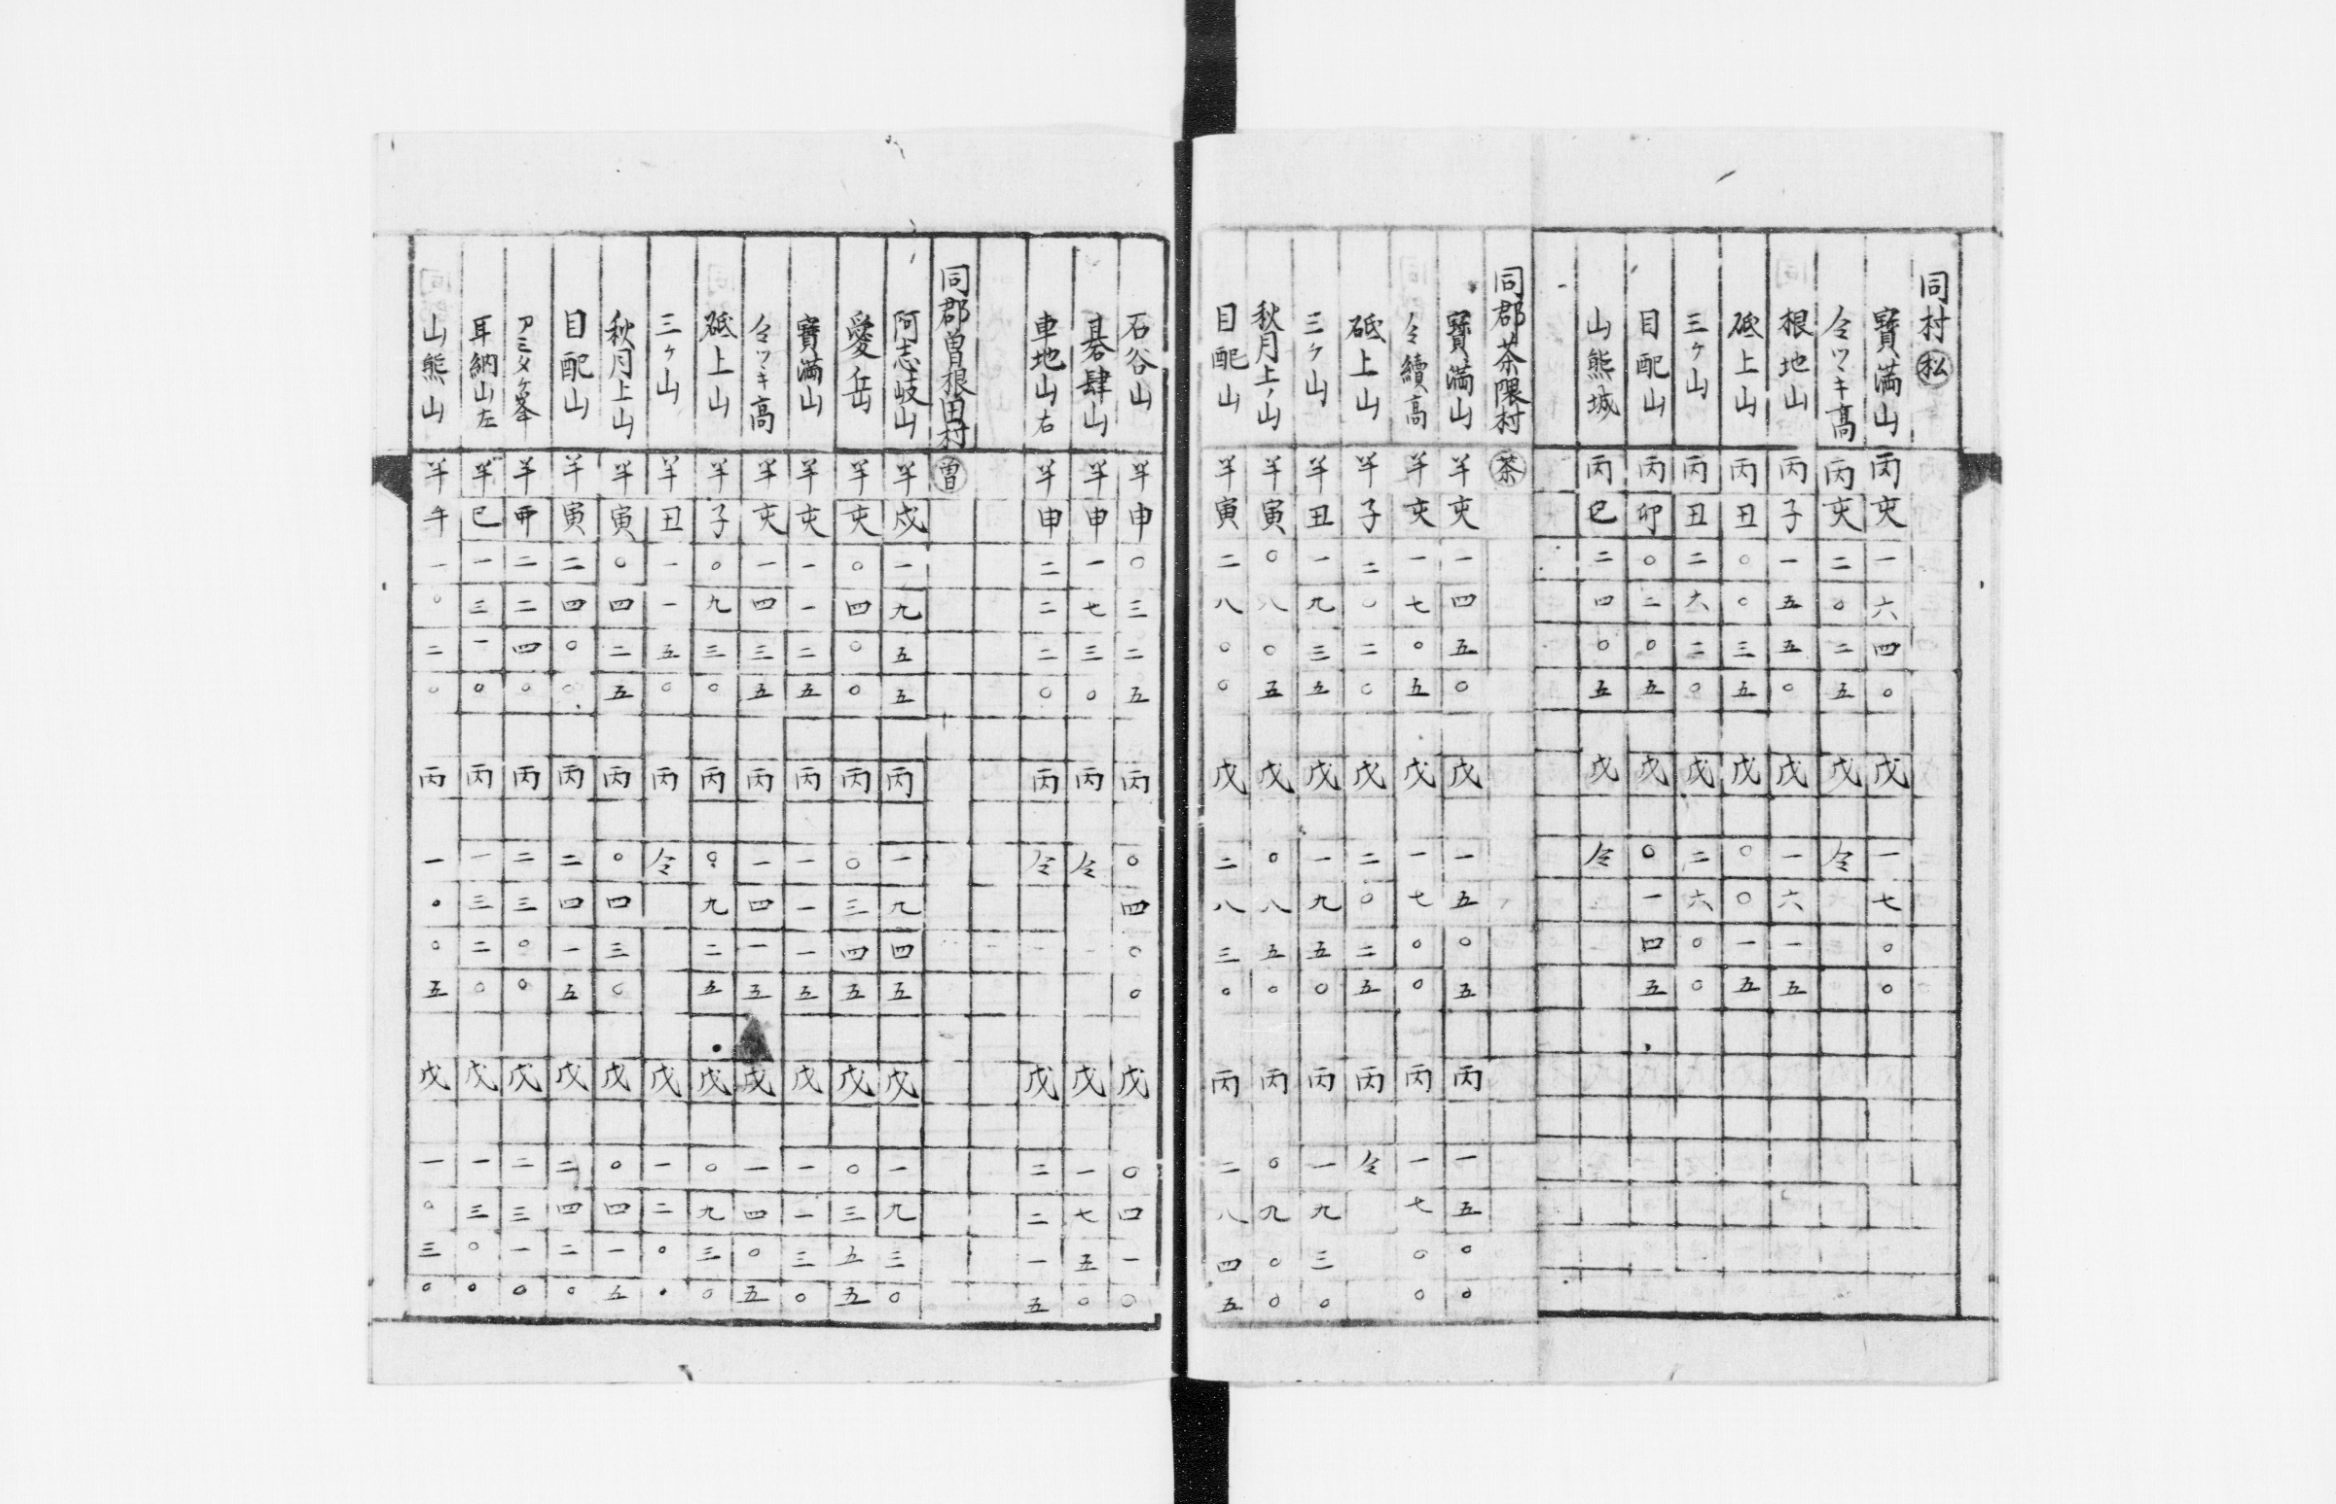 同村㊗松
寳満山 丙 亥 一 六 四 〇 戊 一 七 〇 〇
仝ツヽキ髙 丙 亥 二 〇 二 五 戊 仝
根地山 丙 子 一 五 五 〇 戊 一 六 一 五
砥上山 丙 丑 〇 〇 三 五 戊 〇 〇 一 五
三ヶ山 丙 丑 二 六 二 〇 戊 二 六 〇 〇
目配山 丙 卯 〇 二 〇 五 戊 〇 一 四 五
山熊城 丙 巳 二 四 〇 五 戊 仝
同郡茶隈村 茶
寳満山 羊 亥 一 四 五 〇 戊 一 五 〇 五 丙 一 五 〇 〇
仝續高 羊 亥 一 七 〇 五 戊 一 七 〇 〇 丙 一 七 〇 〇
砥上山 羊 子 二 〇 二 〇 戊 二 〇 二 五 丙 仝
三ヶ山 羊 丑 一 九 三 五 戊 一 九 五 〇 丙 一 九 三 〇
秋月上ノ山 羊 寅 〇 八 〇 五 戊 〇 八 五 〇 丙 〇 九 〇 〇
目配山 羊 寅 二 八 〇 〇 戊 二 八 三 〇 丙 二 八 四 五
石谷山 羊 申 〇 三 二 五 丙 〇 四 〇 〇 戊 〇 四 一 〇
碁肆山 羊 申 一 七 三 〇 丙 仝 戊 一 七 五 〇
車地山右 羊 申 二 二 二 〇 丙 仝 戊 二 二 一 五
同郡曽根田村 曽
阿志岐山 羊 戌 一 九 五 五 丙 一 九 四 五 戊 一 九 三 〇
愛岳 羊 亥 〇 四 〇 〇 丙 〇 三 四 五 戊 〇 三 五 五
寳満山 羊 亥 一 一 二 五 丙 一 一 一 五 戊 一 一 三 〇
仝ツヽキ高 羊 亥 一 四 三 五 丙 一 四 一 五 戊 一 四 〇 五
砥上山 羊 子 〇 九 三 〇 丙 〇 九 二 五 戊 〇 九 三 〇
三ヶ山 羊 丑 一 一 五 〇 丙 仝 戊 一 二 〇 〇
秋月上山 羊 寅 〇 四 二 五 丙 〇 四 三 〇 戊 〇 四 一 五
目配山 羊 寅 二 四 〇 〇 丙 二 四 一 五 戊 二 四 二 〇
アミタヶ峯 羊 二 二 四 〇 丙 二 三 〇 〇 戊 二 三 一 〇
耳納山左 羊 巳 一 三 一 〇 丙 一 三 二 〇 戊 一 三 〇 〇
山熊山 羊 午 一 〇 二 〇 丙 一 〇 〇 五 戊 一 〇 三 〇